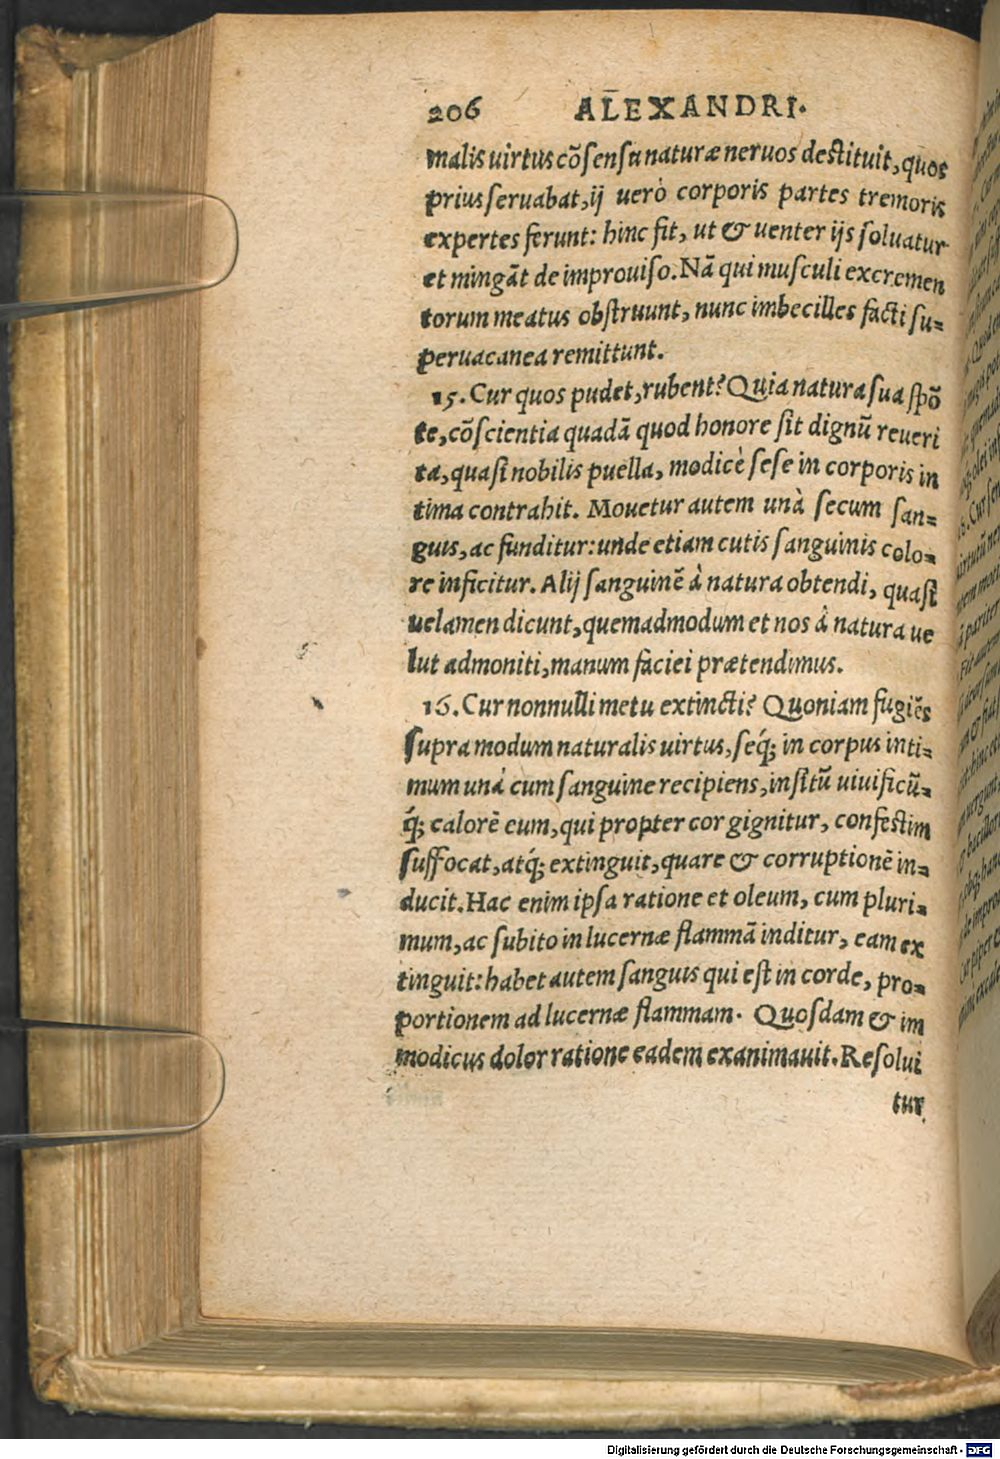 206 ALEXANDRI.
malis uirtus cōsensu naturæ neruos destituit, quos
prius seruabat, ij uerò corporis partes tremoris
expertes ferunt: hinc fit, ut & uenter ijs soluatur
et mingāt de improuiso. Nā qui musculi excremen
torum meatus obstruunt, nunc imbecilles facti su-
peruacanea remittunt.
15. Cur quos pudet, rubent? Quia natura sua spō
te, cōscientia quadā quod honore sit dignū reueri
ta, quasi nobilis puella, modicè sese in corporis in
tima contrahit. Mouetur autem unà secum san-
guis, ac funditur: unde etiam cutis sanguinis colo-
re inficitur. Alij sanguinē à natura obtendi, quasi
uelamen dicunt, quemadmodum et nos à natura ue
lut admoniti, manum faciei prætendimus.
16. Cur nonnulli metu extincti? Quoniam fugiēs
supra modum naturalis uirtus, seq́; in corpus inti-
mum unà cum sanguine recipiens, insitū uiuificū-
q́; calorē eum, qui propter cor gignitur, confestim
suffocat, atq́; extinguit, quare & corruptionē in-
ducit. Hac enim ipsa ratione et oleum, cum pluri-
mum, ac subito in lucernæ flammā inditur, eam ex
tinguit: habet autem sanguis qui est in corde, pro-
portionem ad lucernæ flammam. Quosdam & im
modicus dolor ratione eadem exanimauit. Resolui
tur
Digitalisierung gefördert durch die Deutsche Forschungsgemeinschaft - DFG